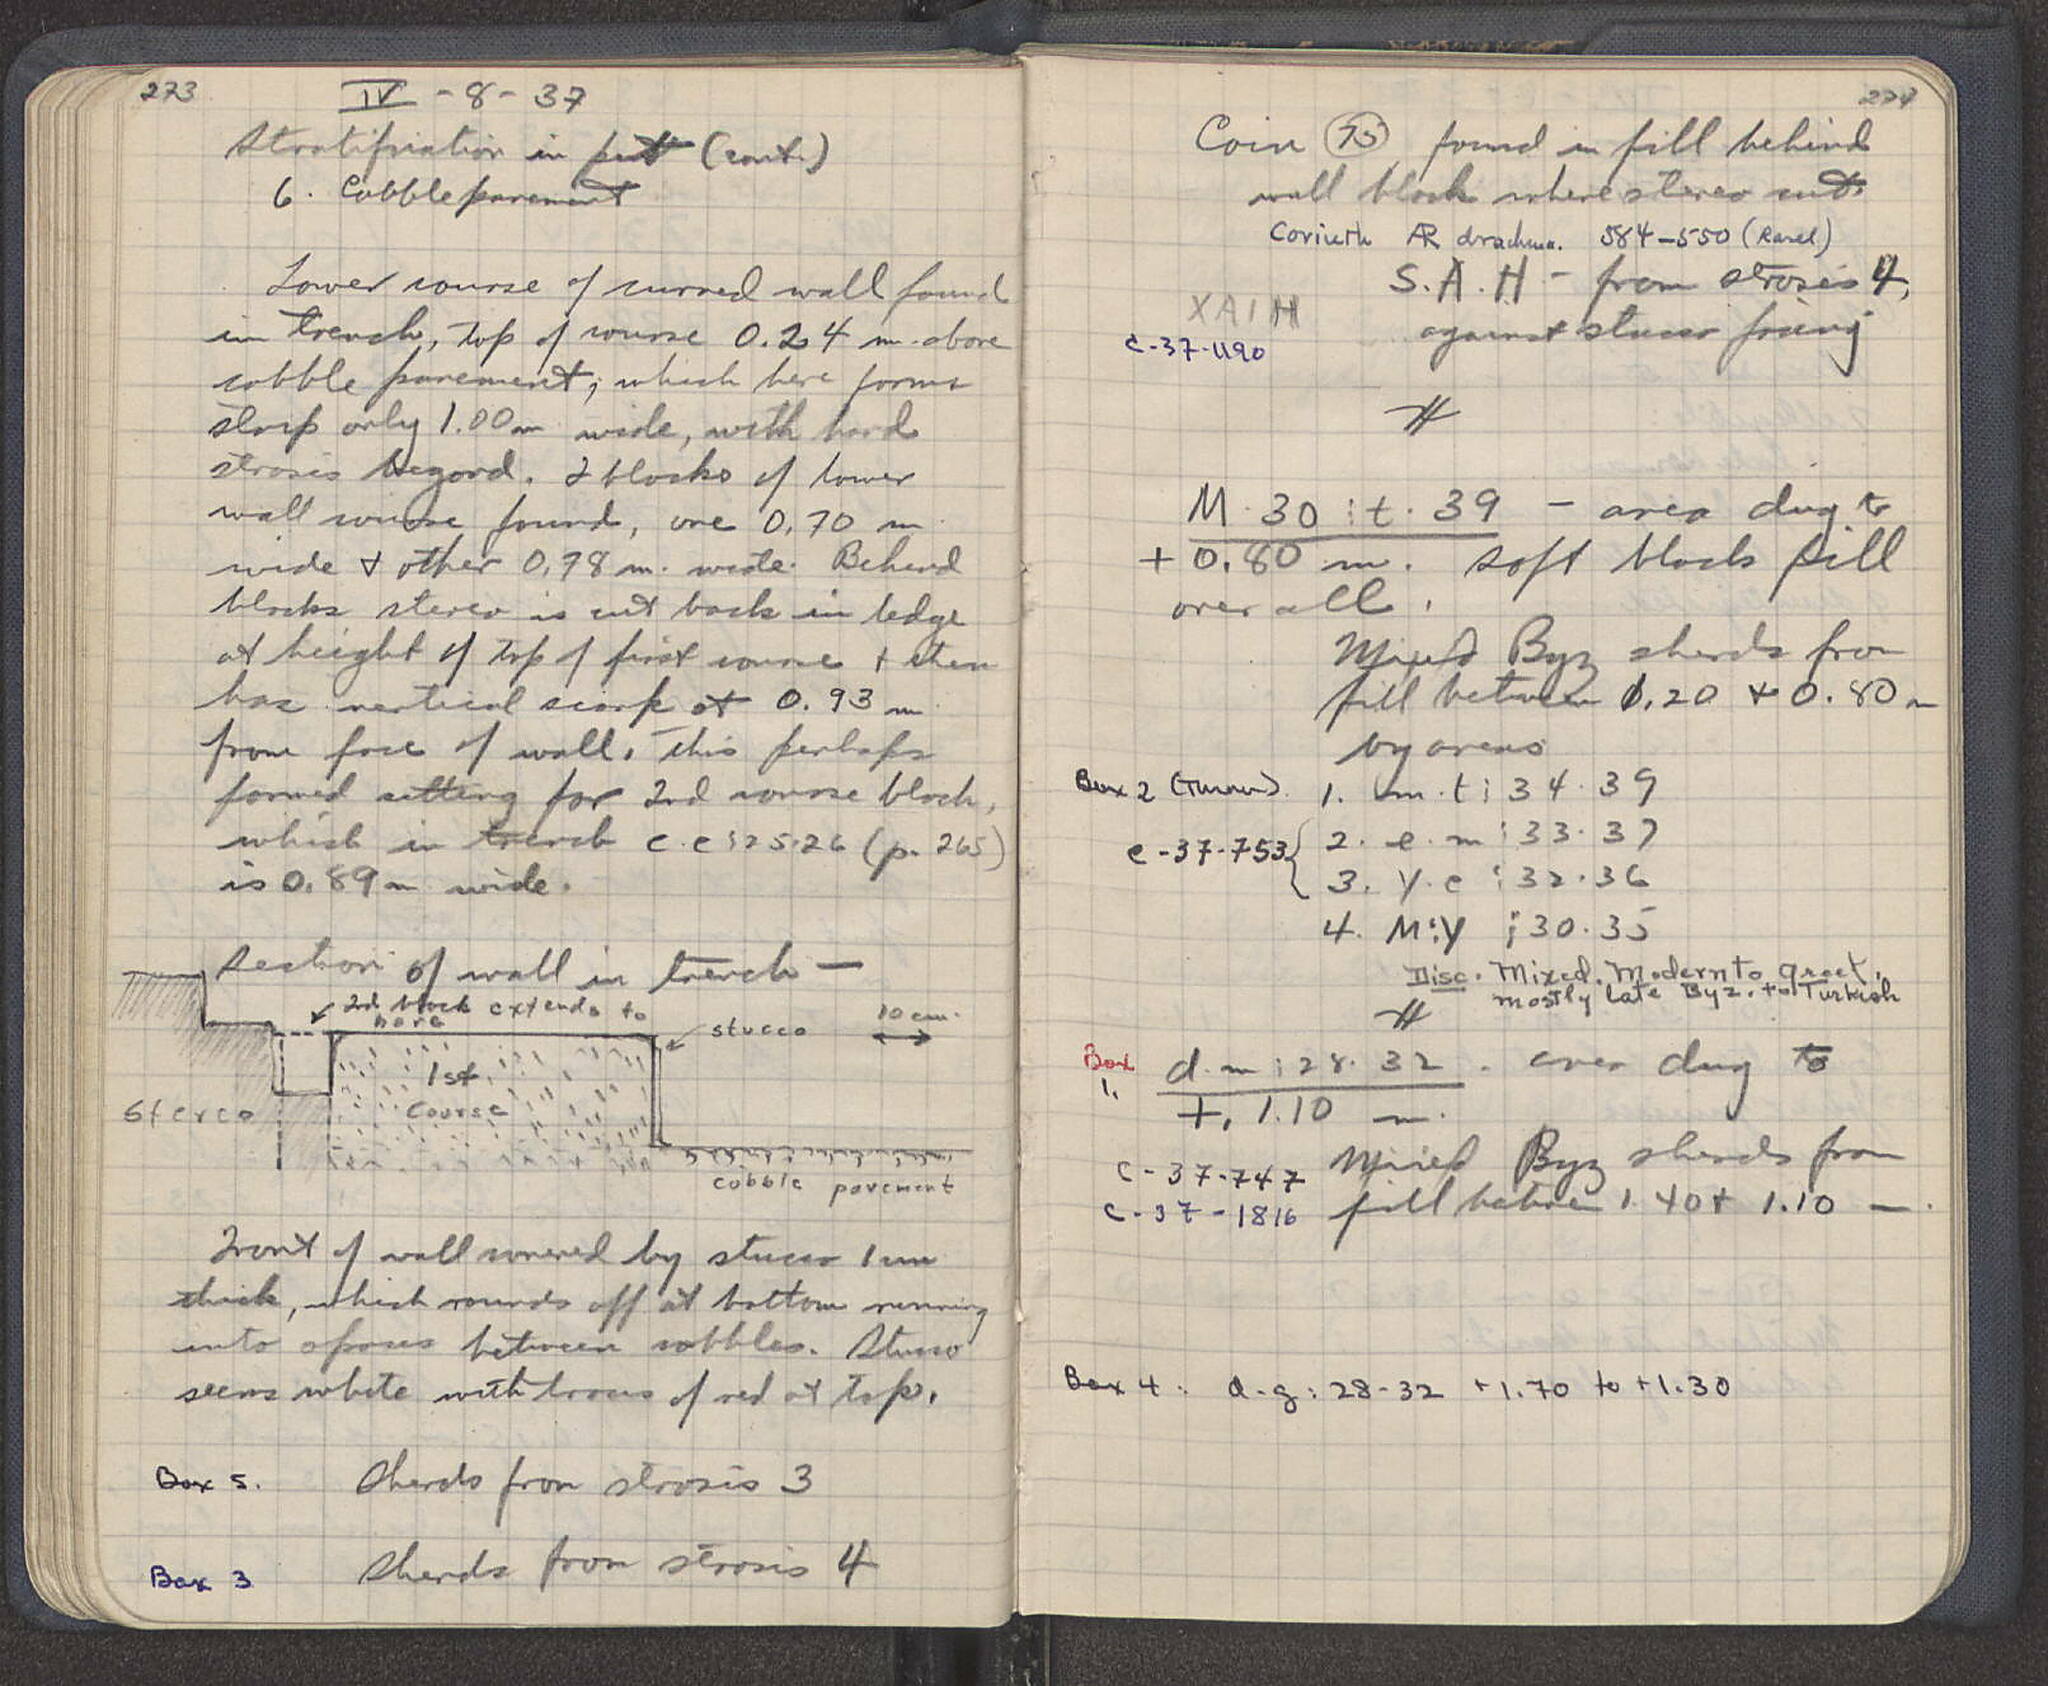 273
IV - 8 - 37
Stratification in pit (cont.)
6. Cobble pavement
Lower course of curved wall found
in trench, top of course 0.24 m. above
cobble pavement, which here forms
strip only 1.00 m wide, with hard
strosis beyond. 2 blocks of lower
wall course found, one 0.70 m
wide & other 0.78 m. wide. Behind
blocks stereo is cut back in ledge
at height of top of first course & then
has vertical scarp at 0.93 m
from face of wall. This perhaps
formed setting for 2nd course block,
which in trench c.e:25.26 (p. 265)
is 0.89 m wide.
Section of wall in trench —
2nd block extends to
here
stucco
10 cm.
1st
course
Stereo
cobble pavement
Front of wall covered by stucco 1 cm
thick, which rounds off at bottom running
into spaces between cobbles. Stucco
seems white with traces of red at top.
Box 5. Sherds from strosis 3
Box 3 Sherds from strosis 4
274
Coin 75 found in fill behind
wall block where stereo cut.
Corinth AR drachma. 584-550 (Ravel)
S.A.H - from strosis 4,
XAIH
against stucco facing
C-37-1190
#
M.30:t.39 - area dug to
+ 0.80 m. soft black fill
over all.
Mixed Byz sherds from
fill between 1.20 & 0.80 m
by areas
Box 2 (Thrown) 1. m.t:34.39
C-37-753 { 2. e.m:33.37
3. y.e:32.36
4. M:y:30.35
Disc. Mixed. Modern to Greek,
mostly late Byz. to Turkish
#
Box
1.
d.m:28.32. area dug to
+. 1.10 m.
C-37-747 Mixed Byz sherds from
C-37-1816 fill between 1.40 & 1.10 —.
Box 4: d-g:28-32 +1.70 to +1.30